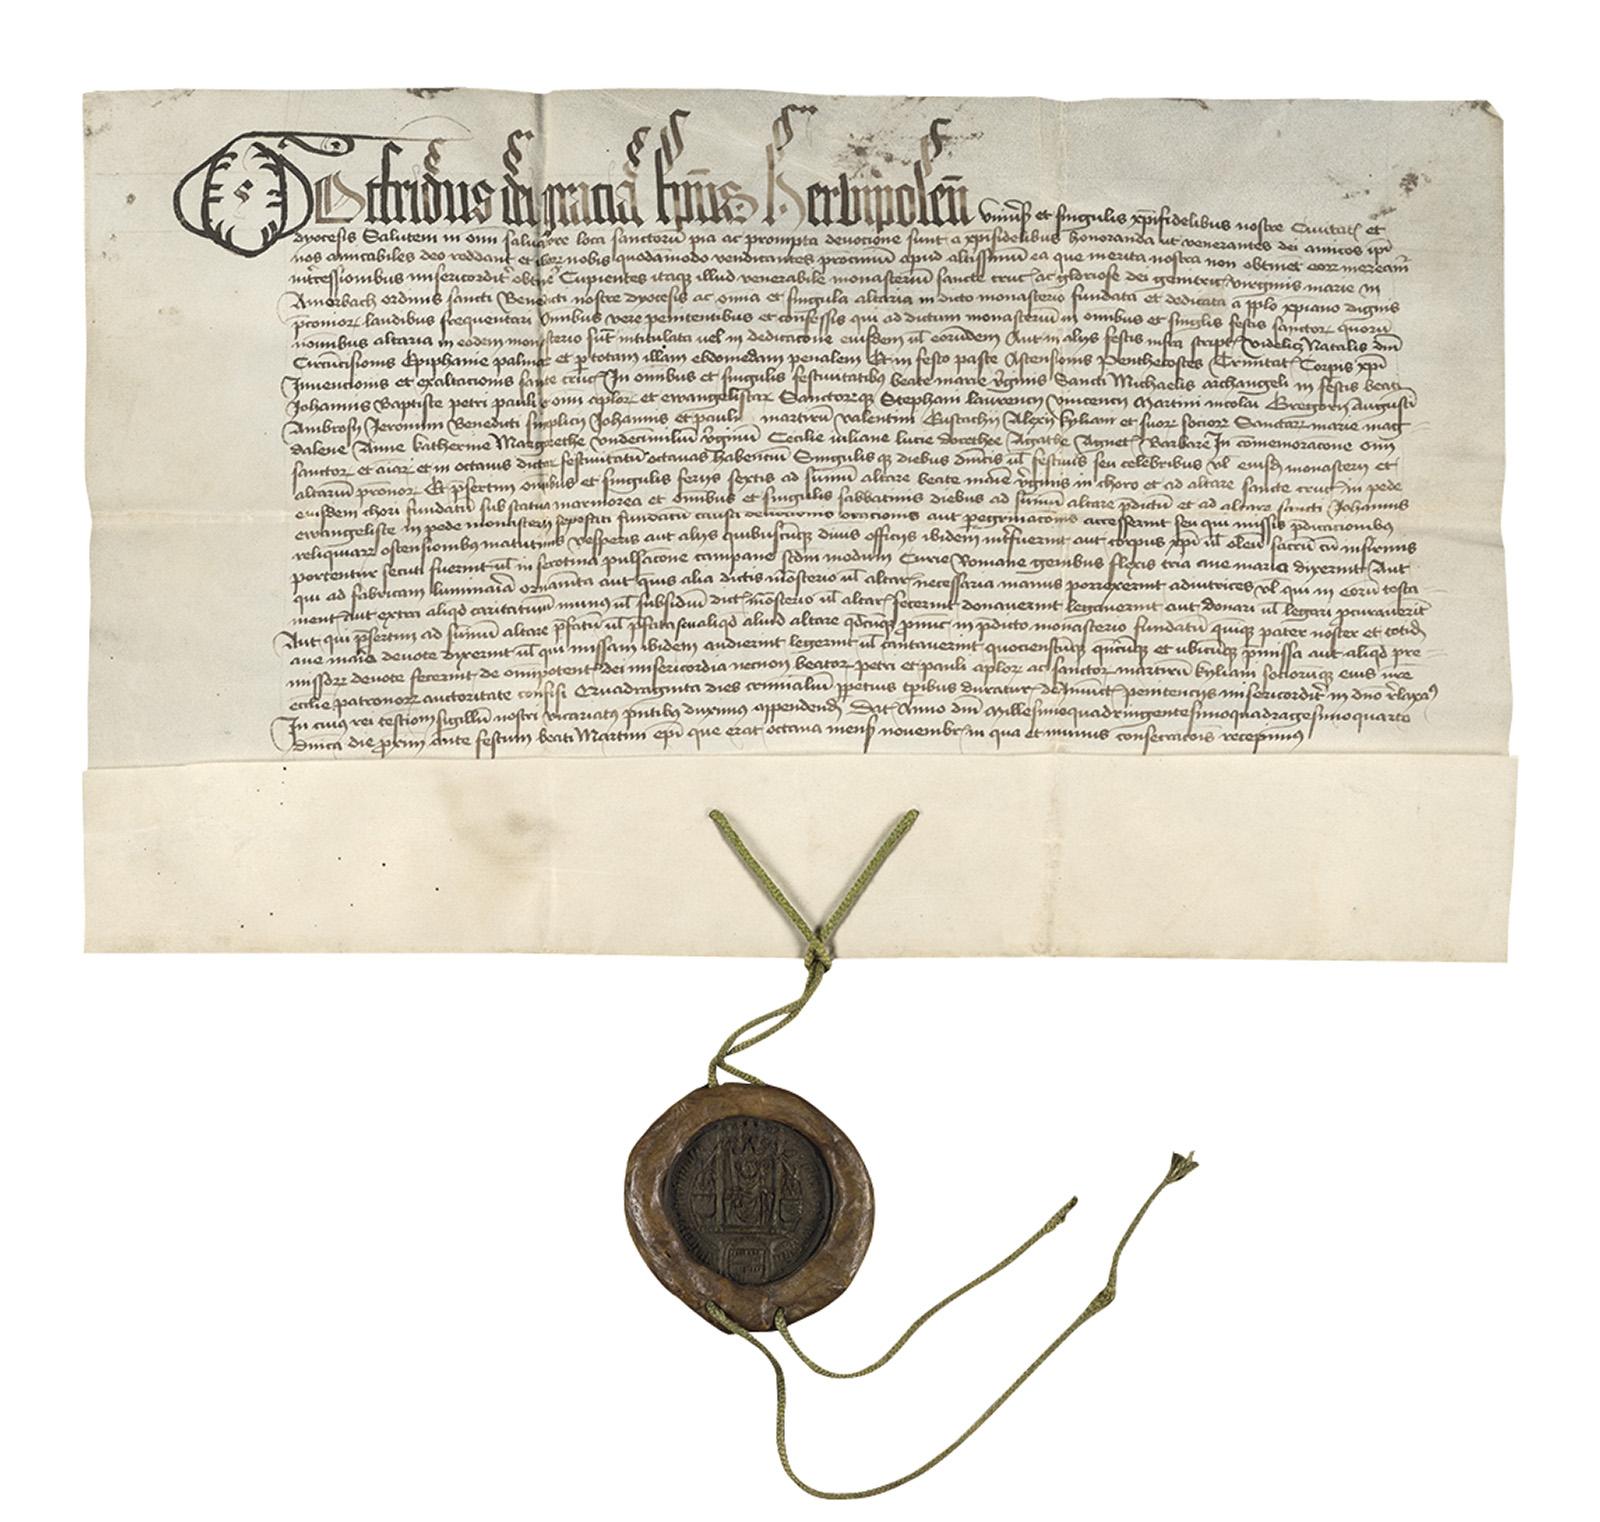 Gotfridus dei gracia Ep̄us Herbipoleñ Vniũs et singulis xp̄ifidelibus nostre Ciuitat et
dyocesis Salutem in om̄ saluatore loca sanctorū pia ac prompta deuocione sunt a xp̄ifidelibus honoranda ut venerantes dei amicos ip̄i
nos amicabiles deo reddant et eor nobis quodāmodo vendicantes prociniū apud altissimū ea que merita nostra non obtinēt eorr mereām̄
int̄cessionibus misericordit̄ obtin̄e Cupientes itaqꝫ illud venerabile monasteriū sancte cruc ac gloriose dei genitric virginis marie in
Amorbach ordinis sancti Benedicti nostre dyocesis ac om̄ia et singula altaria in dicto monasterio fundata et dedicata a pp̄lo xp̄iano dignis
p̄conior laudibus frequentari Omnibus vere penitentibus et confessis qui ad dictum monasteriū in omnibus et singl̄is festis sanctor quorū
nominibus altaria in eodem monasterio sūt intitulata uel in dedicacione eiusdem ul̄ eorūdem Aut in alijs festis infra script videlicꝫ Natalis dn̄i
Circūcisionis Epiphanie palmar et p̄ totam illam ebdomedam penalem Et in festo pasce Ascensionis Penthecostes Trinitat Corpis xp̄i
Inuencionis et exaltacionis sancte cruc In omnibus et singulis festiuitatibꝰ beate marie v̄ginis Sancti Michaelis archangeli in festis beati
Johannis Baptiste petri pauli et om̄ ap̄lor et ewangelistar Sanctorqꝫ Stephani laurencij vincencij Martini nicolai Gregorij Augusti
Ambrosij Jeronimi Benedicti simplicij Johannis et pauli martirū valentini Eustachij Alexij kyliani et suorr sociorr Sanctarr marie mag
dalene Anne katherine Margarethe vndecimiliū v̄ginū Cecilie iuliane lucie dorothee Agathe Agnet Barbare In com̄emoracione om̄
sanctor et aīar et in octauis dictar festiuitatū octauas habentiū Singulisqꝫ diebus dn̄icis ul̄ festiuis seu celebribus ul̄ eiusd monasterij et
altariū p̄ronor Et p̄sertim omnibus et singulis ferijs sextis ad sum̄ū altare beate marie v̄ginis in choro et ad altare sancte cruc in pede
eiusdem chori fundatū sub statua marmorea et omnibus et singulis sabbatinis diebus ad sum̄ū altare p̄dictū et ad altare sancti Johannis
ewangeliste in pede monasterij sepefati fundatū causa deuocionis oracionis aut peregrinacionis accesserint seu qui missis p̄dicacionibus
reliquiarr ostensionibus matutinis vesperis aut alijs quibuscūqꝫ diuīs officijs ibidem int̄fuerint aut corpus xp̄i ul̄ oleū sacrū cū infirmis
portentur secuti fuerint ul̄ in serotina pulsacione campane sc̄dm modum Curie Romane genibus flexis tria aue maria dixerint Aut
qui ad fabricam luminaria ornamēta aut quis alia dictis mōsterio ul̄ altar necessaria manus porrexerint adiutrices ul̄ qui in eorū testa
ment Aut extra aliqd caritatiuū munus ul̄ subsidiū dict mōsterio ul̄ altar fecerint donauerint legauerint aut donari ul̄ legari p̄curauerīt
Aut qui p̄sertim ad sum̄ū altare p̄fatū ul̄ p̄fata seu aliqd aliud altare qd̄cūqꝫ p̄nuc in p̄dicto monasterio fundatū quinqꝫ pater noster et totid
aue maria deuote dixerint ul̄ qui missam ibidem audierint legerint ul̄ cantauerint quocienscūqꝫ qn̄cūqꝫ et ubicūqꝫ p̄missa aut aliqd pre
missorr deuote fecerint de omīpotent dei misericordia necnon beator petri et pauli ap̄lor ac sanctor martirū kyliani sociorūqꝫ eius n̄re
eccl̄ie patronorr auctoritate confisi Quadraginta dies criminaliū p̄petuis tp̄ibus duratur de iniūct penitencijs misericordit̄ in dn̄o r̄laxaꝰ
In cuius rei testiom̄ sigillū nostri vicariatus p̄ntibus duximus appendend Dat Anno dn̄i Millesimoquadringentesimoquadragesimoquarto
dn̄ica die proxim̄ ante festum beati Martini ep̄i que erat octaua mens nouembr in qua et munus consecracōis recepimus